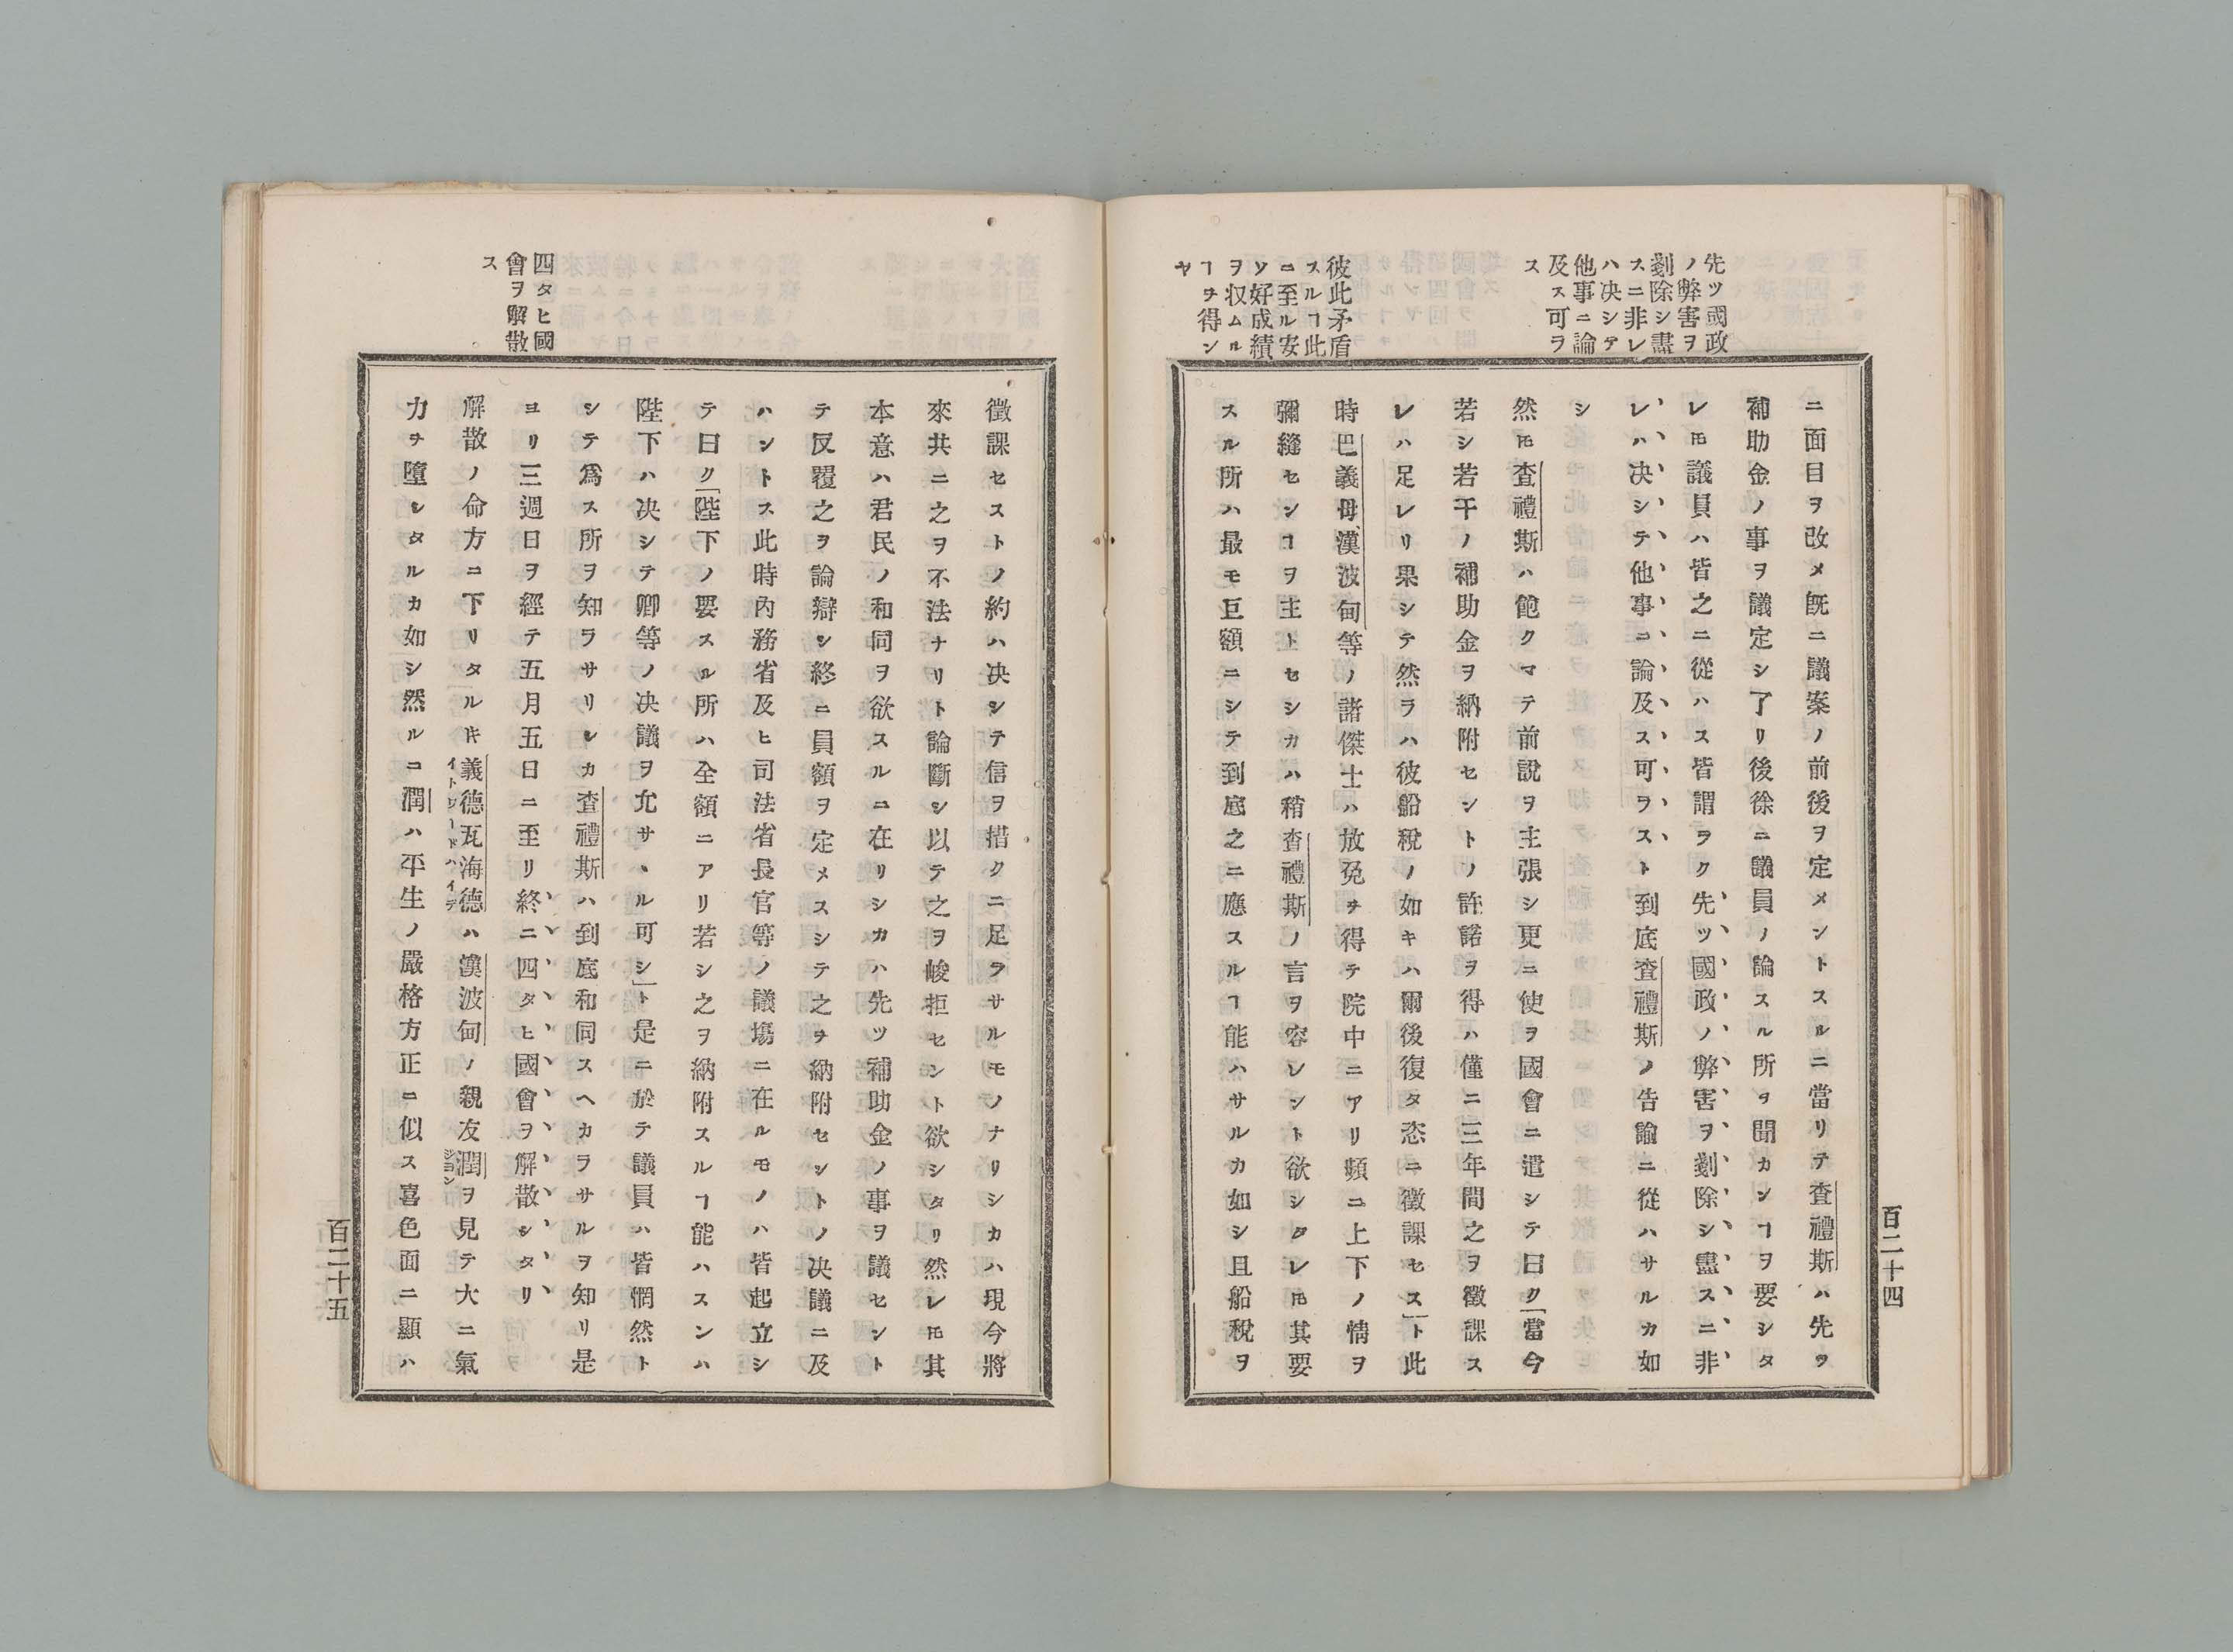 百二十四
先ツ國政
ノ弊害ヲ
剗除シ盡
スニ非レ
ハ决シテ
他事ニ論
及ス可ラ
ス
彼此矛盾
スルヿ此
ニ至ル安
ソ好成績
ヲ収ムル
ヿヲ得ン
ヤ
ニ面目ヲ改メ既ニ議案ノ前後ヲ定メントスルニ當リテ査禮斯ハ先ツ
補助金ノ事ヲ議定シ了リ後徐ニ議員ノ論スル所ヲ聞カンヿヲ要シタ
レ𪜈議員ハ皆之ニ從ハス皆謂ヲク先ツ國政ノ弊害ヲ剗除シ盡スニ非
レハ决シテ他事ニ論及ス可ヲスト到底査禮斯ノ告諭ニ從ハサルカ如
シ
然𪜈査禮斯ハ飽クマテ前說ヲ主張シ更ニ使ヲ國會ニ遣シテ曰ク「當今
若シ若干ノ補助金ヲ納附セントノ許諾ヲ得ハ僅ニ三年間之ヲ徵課ス
レハ足レリ果シテ然ラハ彼船稅ノ如キハ爾後復タ恣ニ徵課セス」ト此
時巴義毋、漢波甸等ノ諸傑士ハ放免ヲ得テ院中ニアリ頻ニ上下ノ情ヲ
彌縫センヿヲ主トセシカハ稍査禮斯ノ言ヲ容レント欲シタレ𪜈其要
スル所ハ最モ巨額ニシテ到底之ニ應スルヿ能ハサルカ如シ且船稅ヲ
四タヒ國
會ヲ解散
ス
徵課セストノ約ハ决シテ信ヲ措クニ足ラサルモノナリシカハ現今將
來共ニ之ヲ不法ナリト論斷シ以テ之ヲ峻拒セント欲シタリ然レ𪜈其
本意ハ君民ノ和同ヲ欲スルニ在リシカハ先ツ補助金ノ事ヲ議セント
テ反覆之ヲ論辯シ終ニ員額ヲ定メスシテ之ヲ納附セントノ决議ニ及
ハントス此時內務省及ヒ司法省長官等ノ議塲ニ在ルモノハ皆起立シ
テ曰ク「陛下ノ要スル所ハ全額ニアリ若シ之ヲ納附スルヿ能ハスンハ
陛下ハ决シテ卿等ノ决議ヲ允サヽル可シ」ト是ニ於テ議員ハ皆惘然ト
シテ爲ス所ヲ知ラサリシカ査禮斯ハ到底和同スヘカラサルヲ知リ是
ヨリ三週日ヲ經テ五月五日ニ至リ終ニ四タヒ國會ヲ解散シタリ
解散ノ命方ニ下リタルキ義德瓦海德ハ漢波甸ノ親友潤ヲ見テ大ニ氣
力ヲ墮シタルカ如シ然ルニ潤ハ平生ノ嚴格方正ニ似ス喜色面ニ顯ハ
百二十五